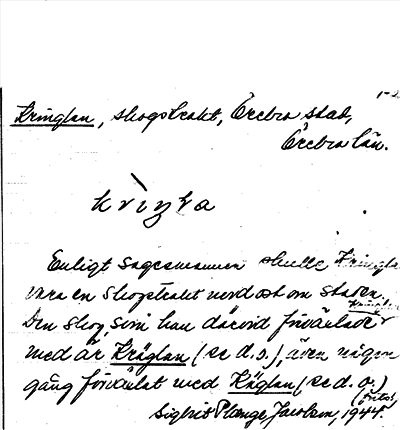 Kringlan, skogstrakt, Örebro stad,
Örebro län.
Enligt sagesmannen skulle Kringla
vara en skogstrakt nordost om staden.
Kringlan
Den skog, som han därvid förväxlade
med är Kräglan (se d.o.), även någon
gång förväxlat med Käglan (se d.o.)
Sigbrit Plange Jacobson, 1944.